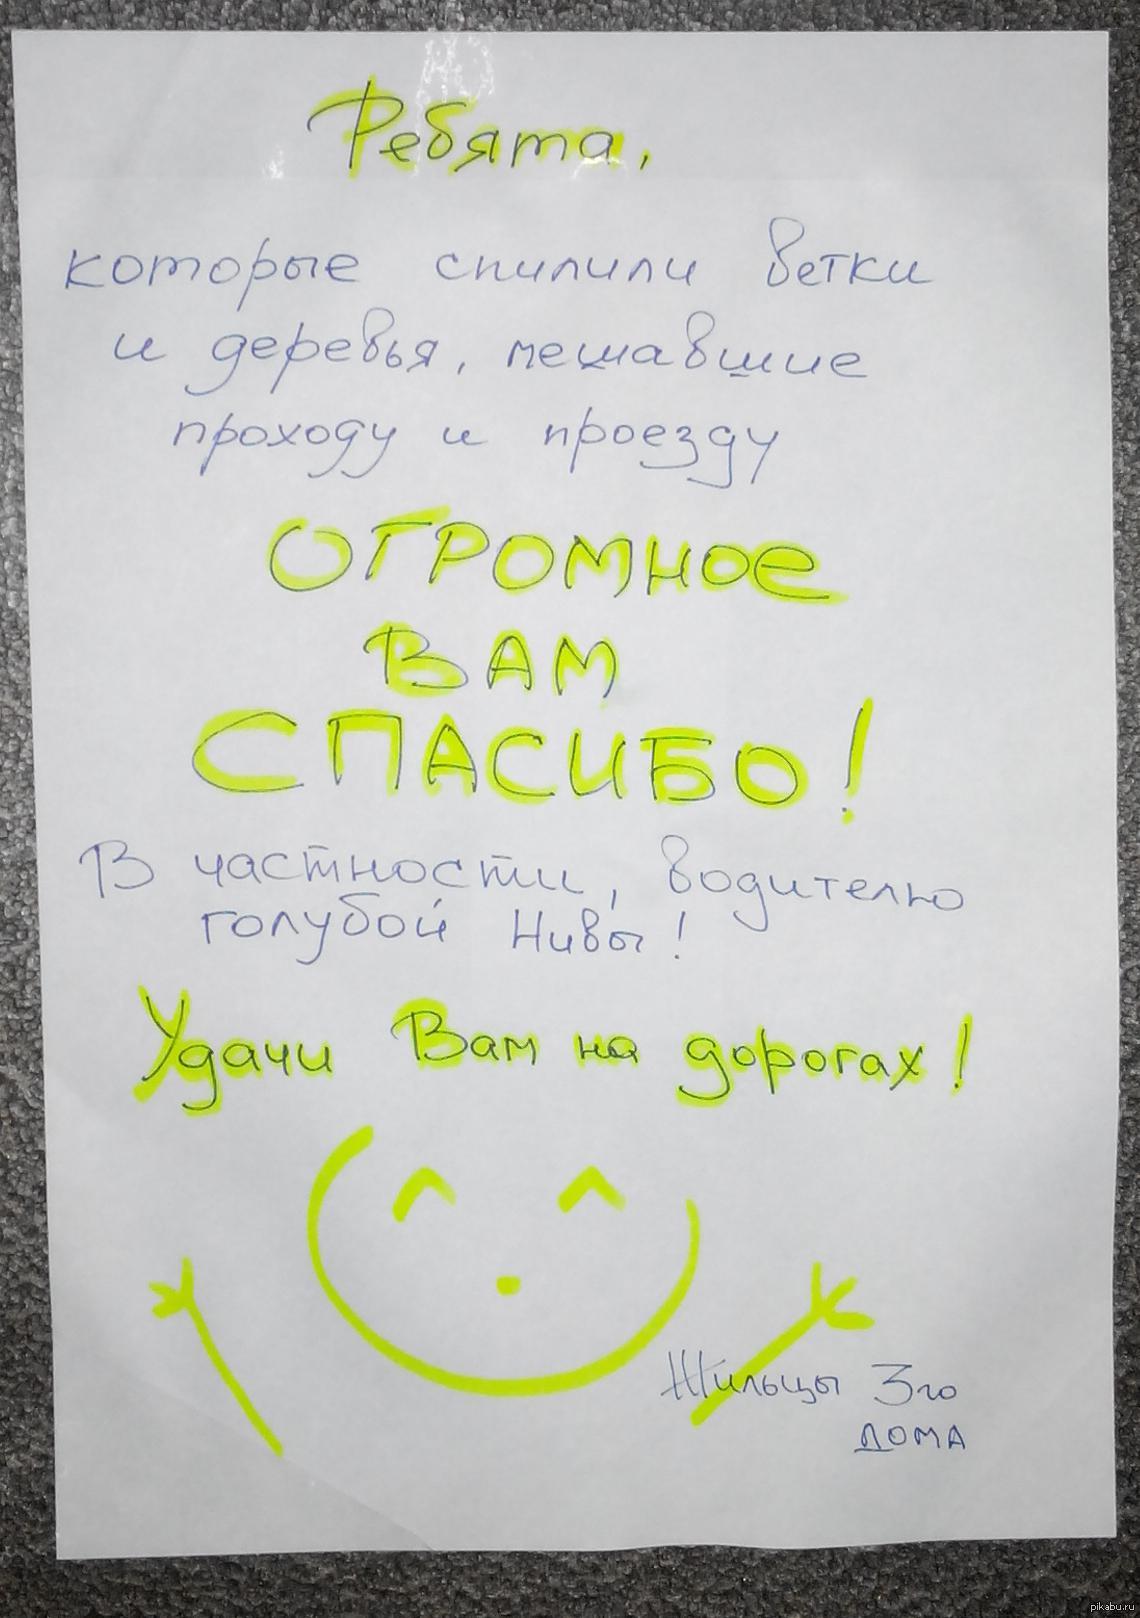 Ребята,
которые спилили ветки
и деревья, мешавшие
проходу и проезду
ОГРОМНОЕ
ВАМ
СПАСИБО!
В частности, водителю
голубой Нивы!
Удачи Вам на дорогах!
Жильцы 3го
дома
pikabu.ru